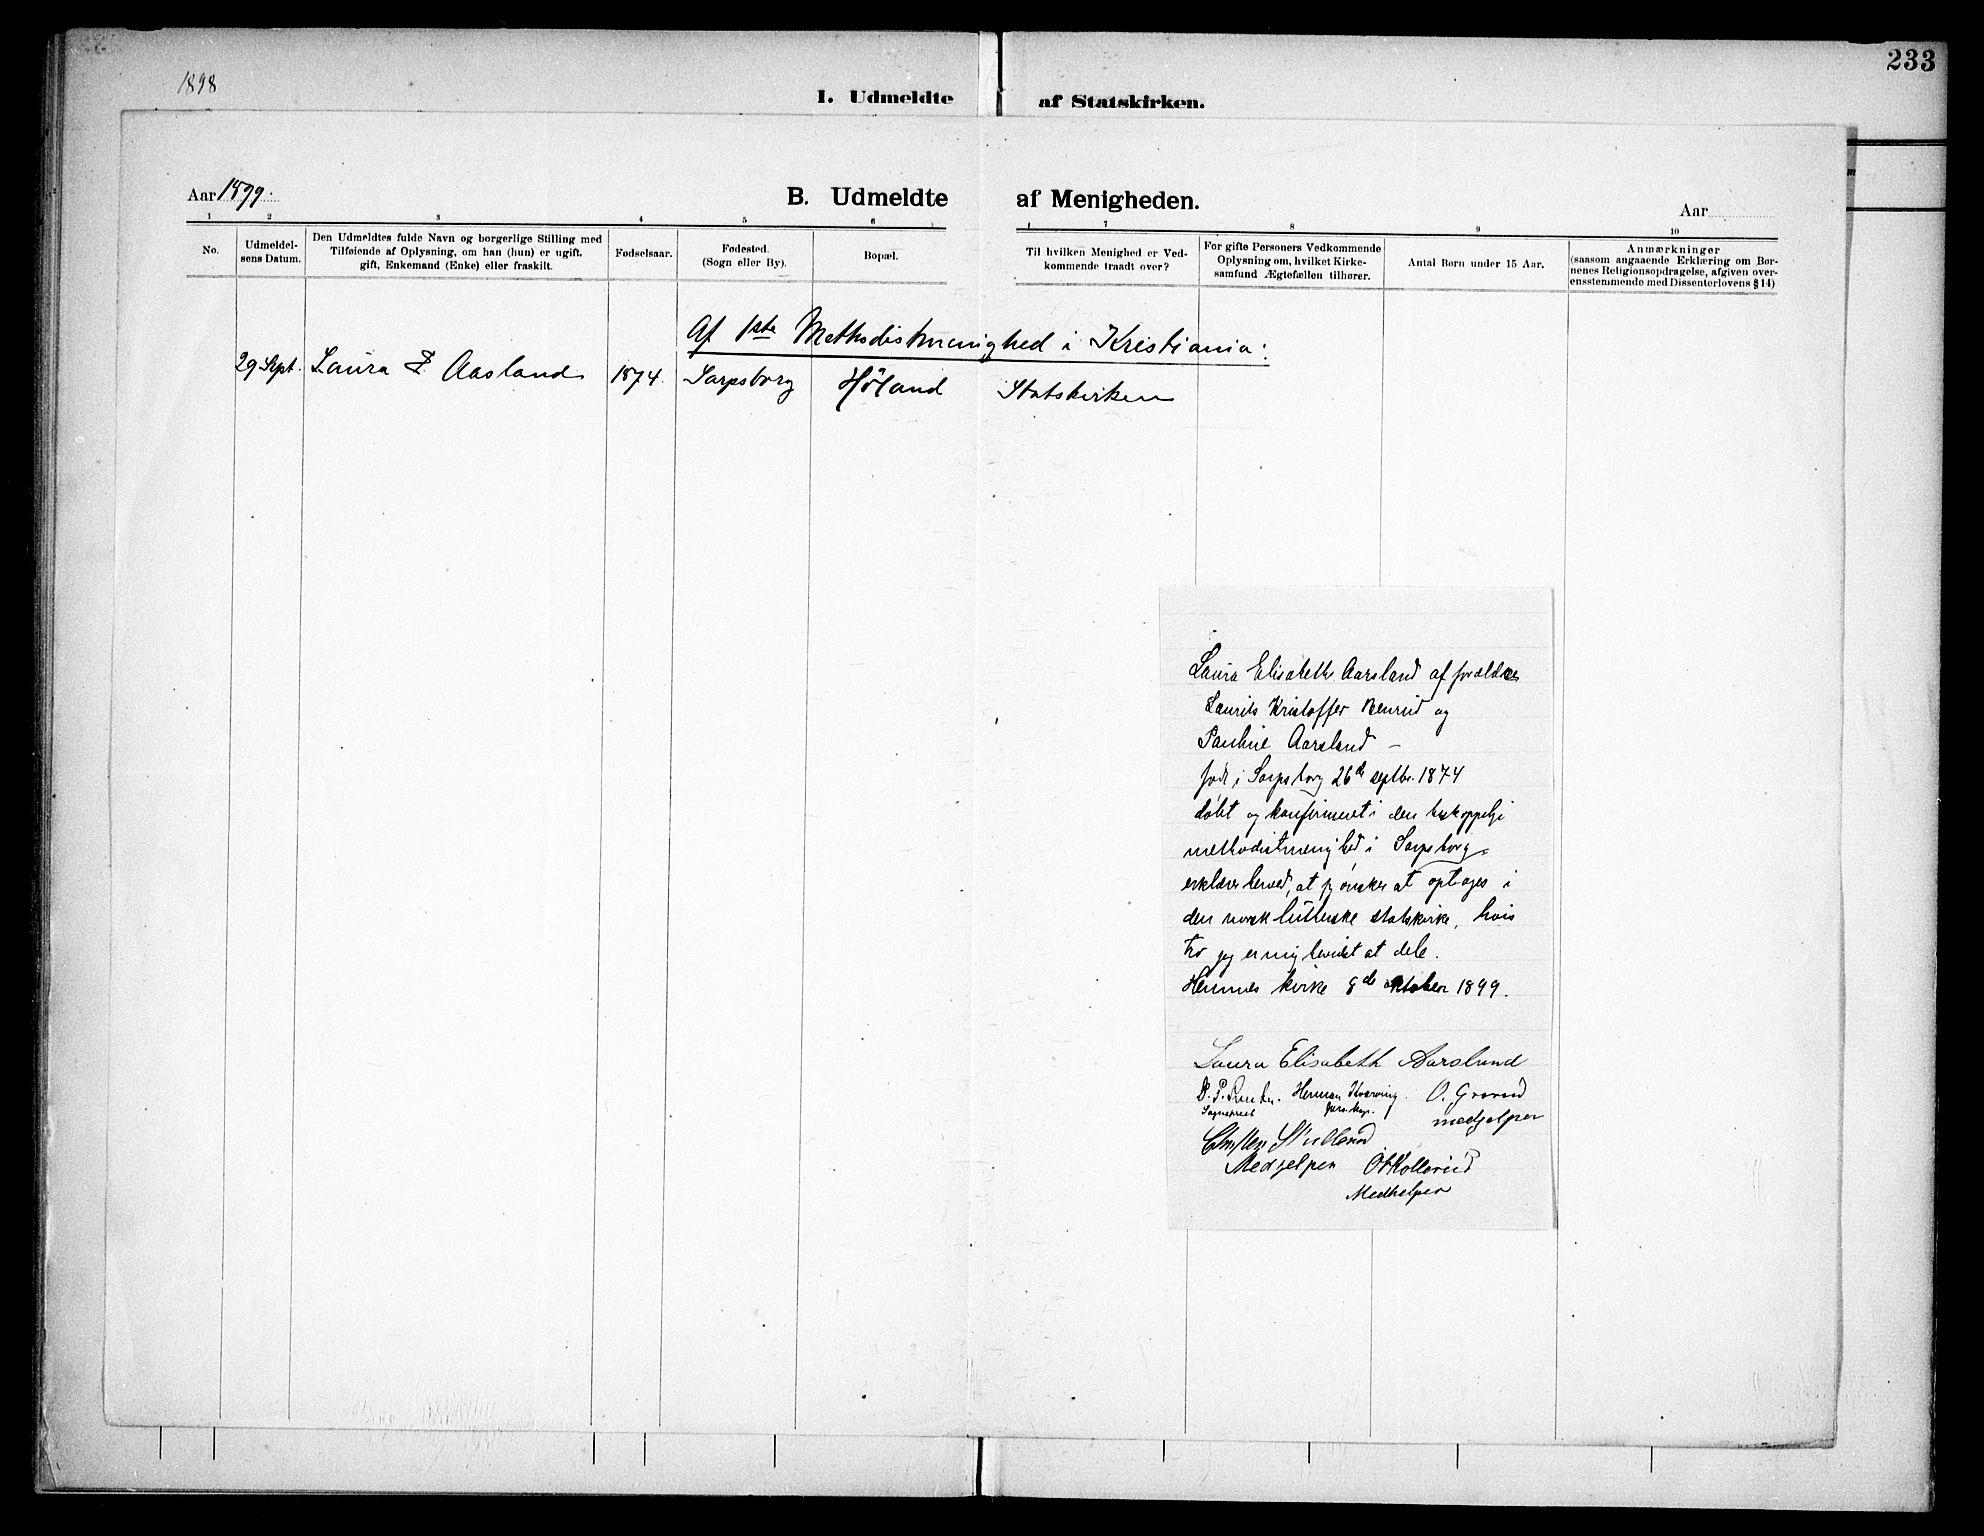 233
1898
I. Udmeldte af Statskirken.
Aar 1899.
B. Udmeldte af Menigheden.
Aar
1 2 3 4 5 6 7 8 9 10
No.
Udmeldel-
sens Datum.
Den Udmeldtes fulde Navn og borgerlige Stilling med
Tilføiende af Oplysning, om han (hun) er ugift,
gift, Enkemand (Enke) eller fraskilt.
Fødselsaar.
Fødested.
(Sogn eller By).
Bopæl.
Til hvilken Menighed er Ved-
kommende traadt over?
For gifte Personers Vedkommende
Oplysning om, hvilket Kirke-
samfund Ægtefællen tilhører.
Antal Børn under 15 Aar.
Anmærkninger
(saasom angaaende Erklæring om Bør-
nenes Religionsopdragelse, afgiven over-
ensstemmende med Dissenterlovens § 14)
Af 1ste Methodistmenighed i Kristiania:
29 Sept. Laura E. Aasland 1874. Sarpsborg Høland Statskirken
Laura Elisabeth Aarsland af forældre
Laurits Kristoffer og
Pauline Aarsland –
født i Sarpsborg 26de septbr. 1874
døbt og konfirmeret i den biskoppelige
methodistmenighed i Sarpsborg
erklærer herved, at jeg ønsker at optages i
den norsk lutherske statskirke, hvis
tro jeg er mig bevidst at dele.
Hemnes kirke 8de oktober 1899.
Laura Elisabeth Aarslund
Herman O.
Sogneprest
medhjelper
Medhjelper
Medhelper